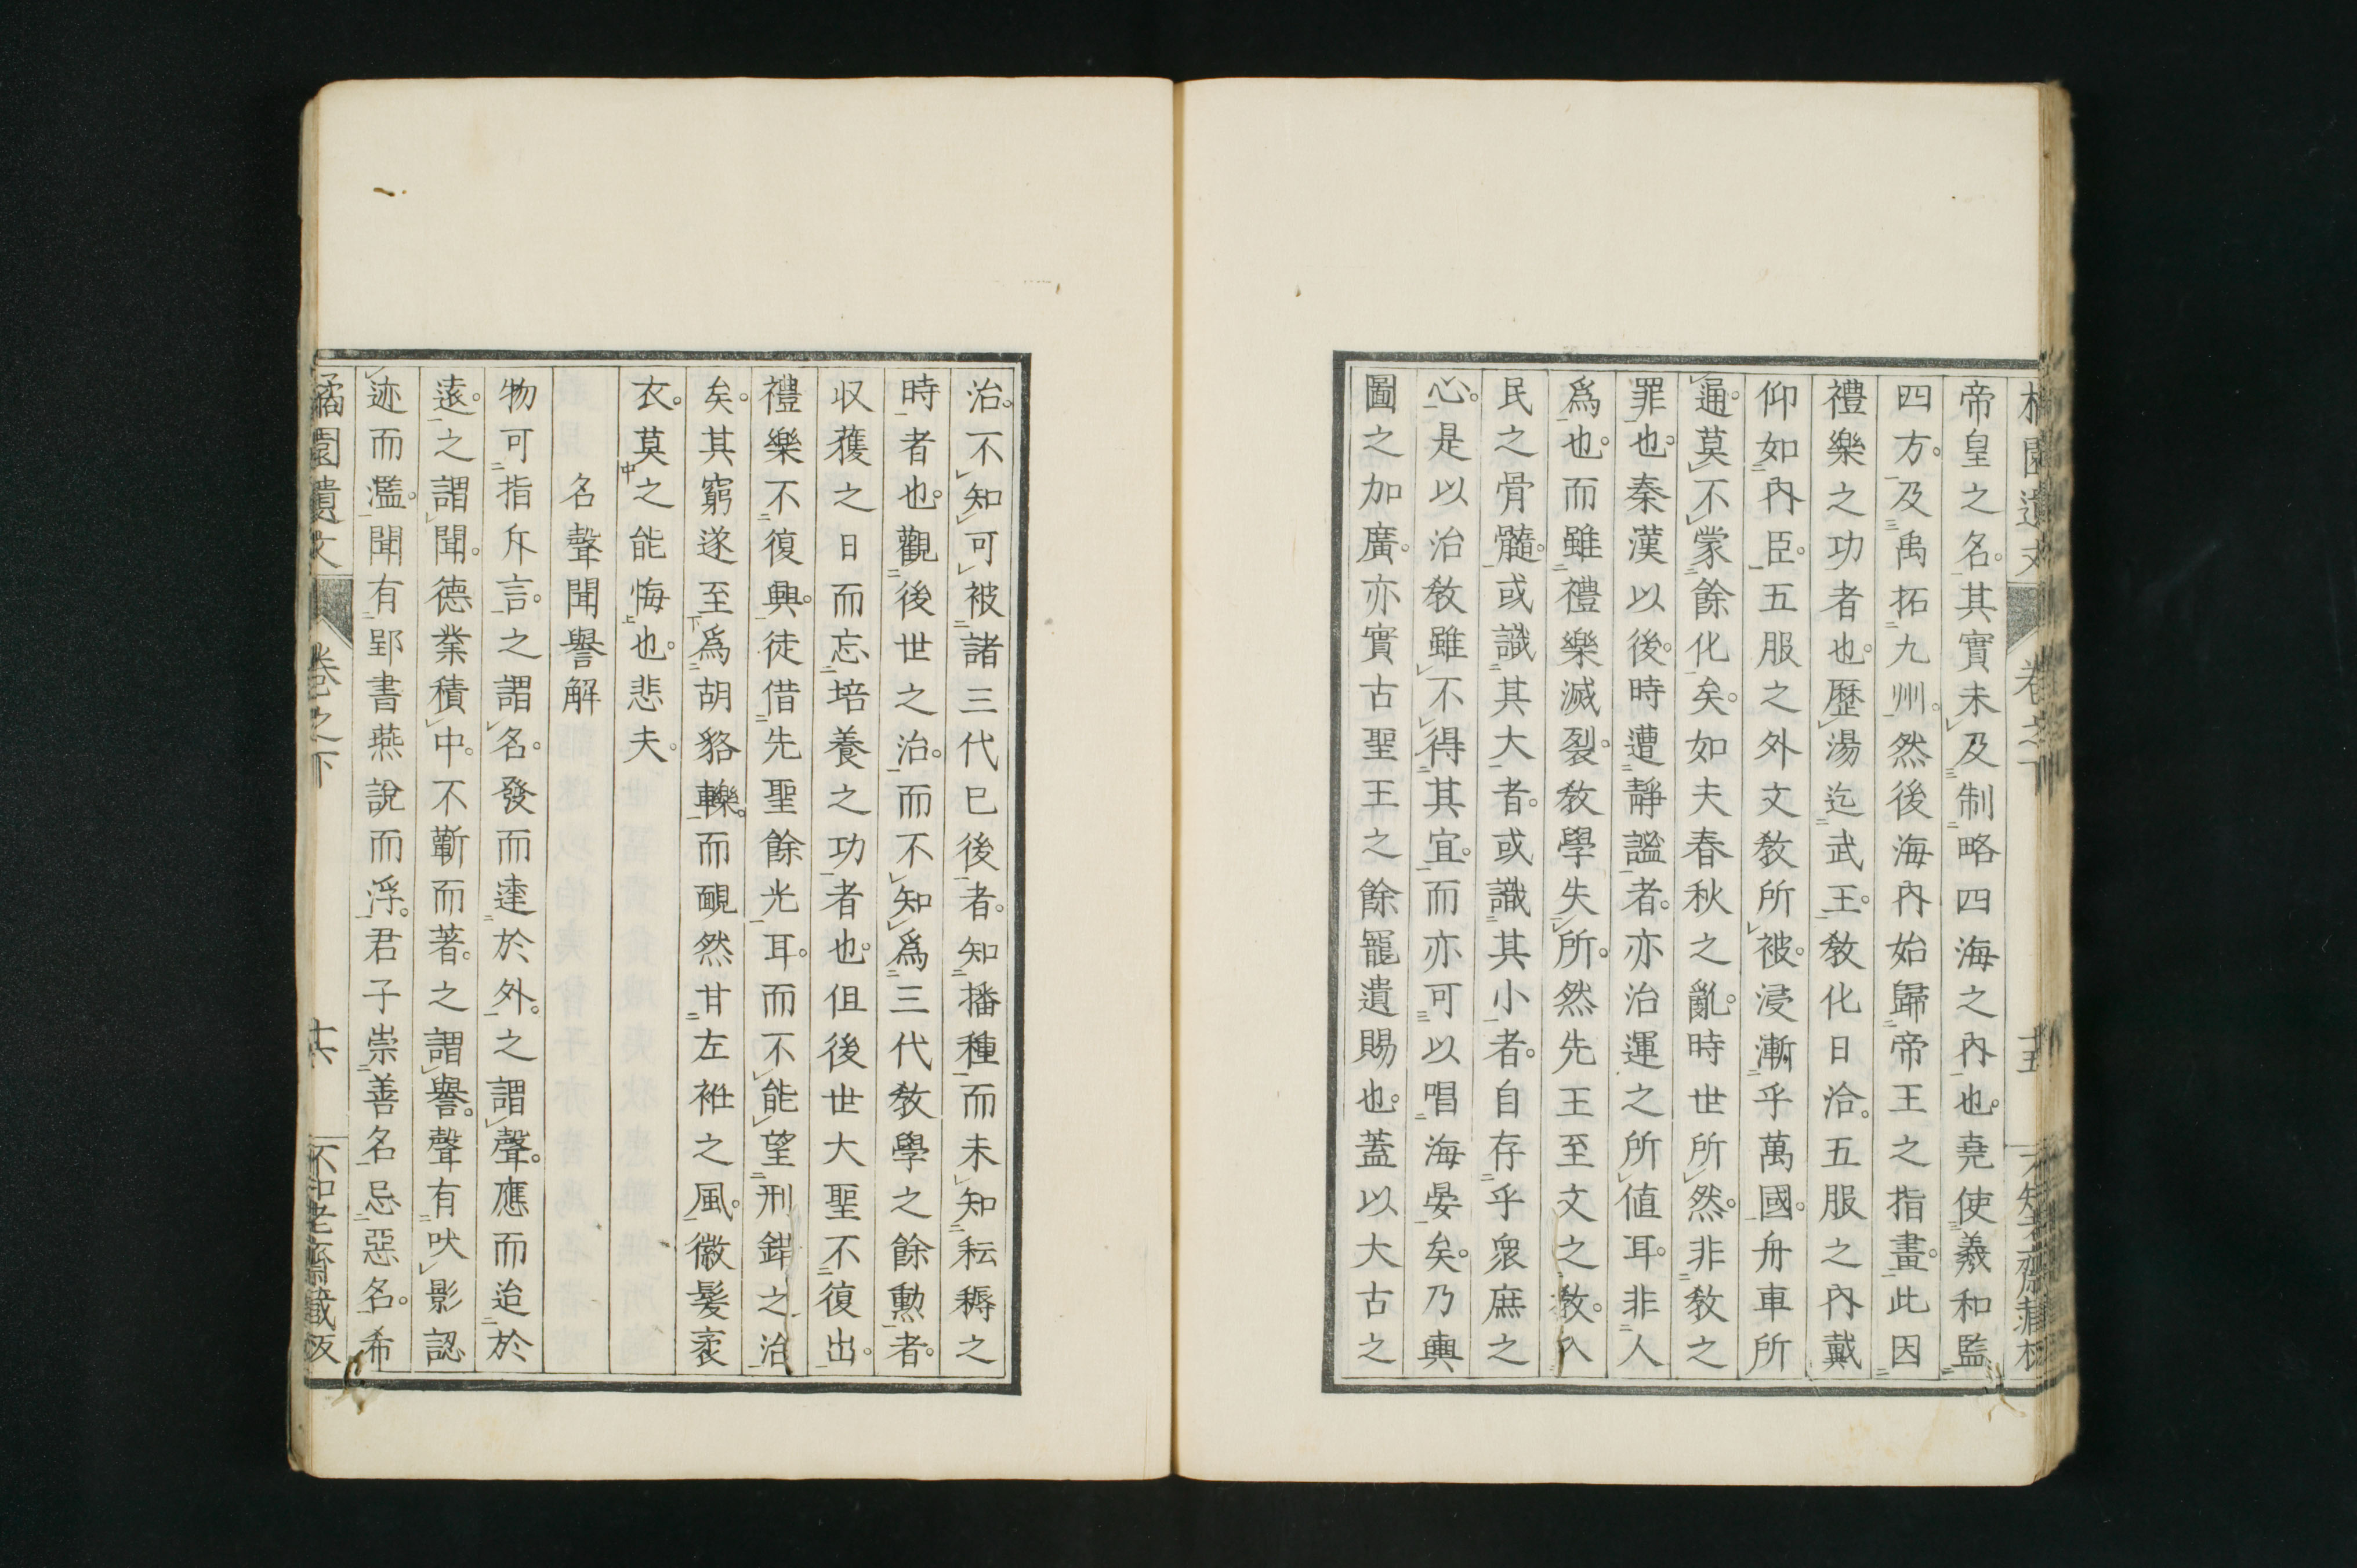 帝皇之名。其實未及制略四海之內也。堯使羲和監
四方。及禹拓九州。然後海內始歸帝王之指畫。此因
禮樂之功者也。歷湯迄武王。教化日洽。五服之內戴
仰如內臣。五服之外文教所被。浸漸乎萬國。舟車所
通。莫不蒙餘化矣。如夫春秋之亂。時世所然。非教之
罪也。秦漢以後。時遭靜謐者。亦治運之所値耳。非人
爲也。而雖禮樂滅裂。教學失所。然先王至文之教。入
民之骨髓。或識其大者。或識其小者。自存乎衆庶之
心。是以治教雖不得其宜。而亦可以唱海晏矣。乃輿
圖之加廣。亦實古聖王之餘寵遺賜也。蓋以大古之
治。不知可被諸三代已後者。知播種而未知耘耨之
時者也。觀後世之治。而不知爲三代教學之餘勲者。
収穫之日而忘培養之功者也。但後世大聖不復出。
禮樂不復興。徒借先聖餘光耳。而不能望刑錯之治
矣。其窮遂至爲胡貉轢。而靦然甘左袵之風。徽髮衺
衣。莫之能悔也。悲夫。
名聲聞譽解
物可指斥言。之謂名。發而達於外。之謂聲。應而迨於
遠。之謂聞。德業積中。不蘄而著。之謂譽。聲有吠影認
迹而濫。聞有郢書燕說而浮。君子崇善名忌惡名。希
橘園遺文 卷之下 十六 不知老齋藏板